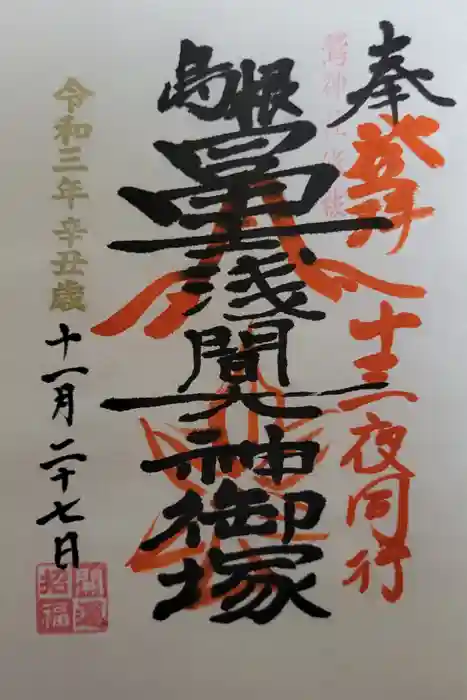 奉
登拝
十三夜同行
島根
冨士浅間大神御塚
令和三年辛丑歳
十一月二十七日
開運
招福